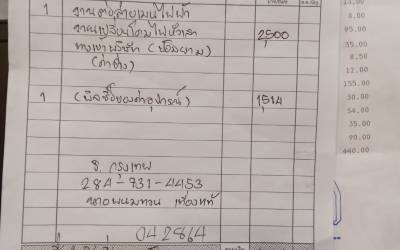 1 งานต่อสายเมนไฟฟ้า
งานเปลี่ยนโคมไฟหัวเสา 2500
ทางเข้าบริษัท (ป้อมยาม)
(ค่าช่าง)
1 (บิลซื้อของค่าอุปกรณ์) 1514
ธ. กรุงเทพ
284-931-4453
042864
13.00
8.00
95.00
35.00
8.50
12.00
155.00
30.00
54.00
35.00
90.00
440.00